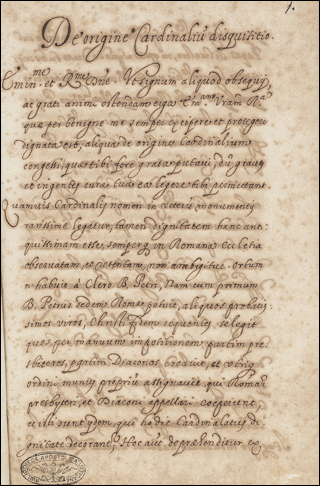 1.
De origine Cardinaliũ disquisitio.
Emin.me et R.me Dñe. Ut signum aliquod obsequij,
ac grati animi ostendam erga Em.am Vram R.
quæ per benigne me semper excipere et protegere
dignata est, aliqua de origine Cardinalium
congessi, quæ tibi fore grata putavi, dũ graves
et ingentes curæ tuæ ea legere tibi permittant.
Quamvis Cardinalis nomen in veteru monumentis
rarissime legatur, tamen dignitatem hanc anti-
quissimam esse, semperq. in Romana Ecclesia
observatam, et retentam, non ambigitur. Ortum
n. habuit à Clero B. Petri, Nam cum primum
B. Petrus sedem Romæ posuit, aliquos probatis-
simos viros, Christi fidem sequentes selegit
quos per manuum impositionem partim pre-
sbiteros, partim Diaconos creavit, et cuiq.
ordini munus propriũ assignavit, qui Romæ
presbyteri, et Diaconi appellari coeperunt,
et isti sunt ijdem, qui hodie Cardinalatus di-
gnitate decorant. Hoc aut. depræhenditur ex